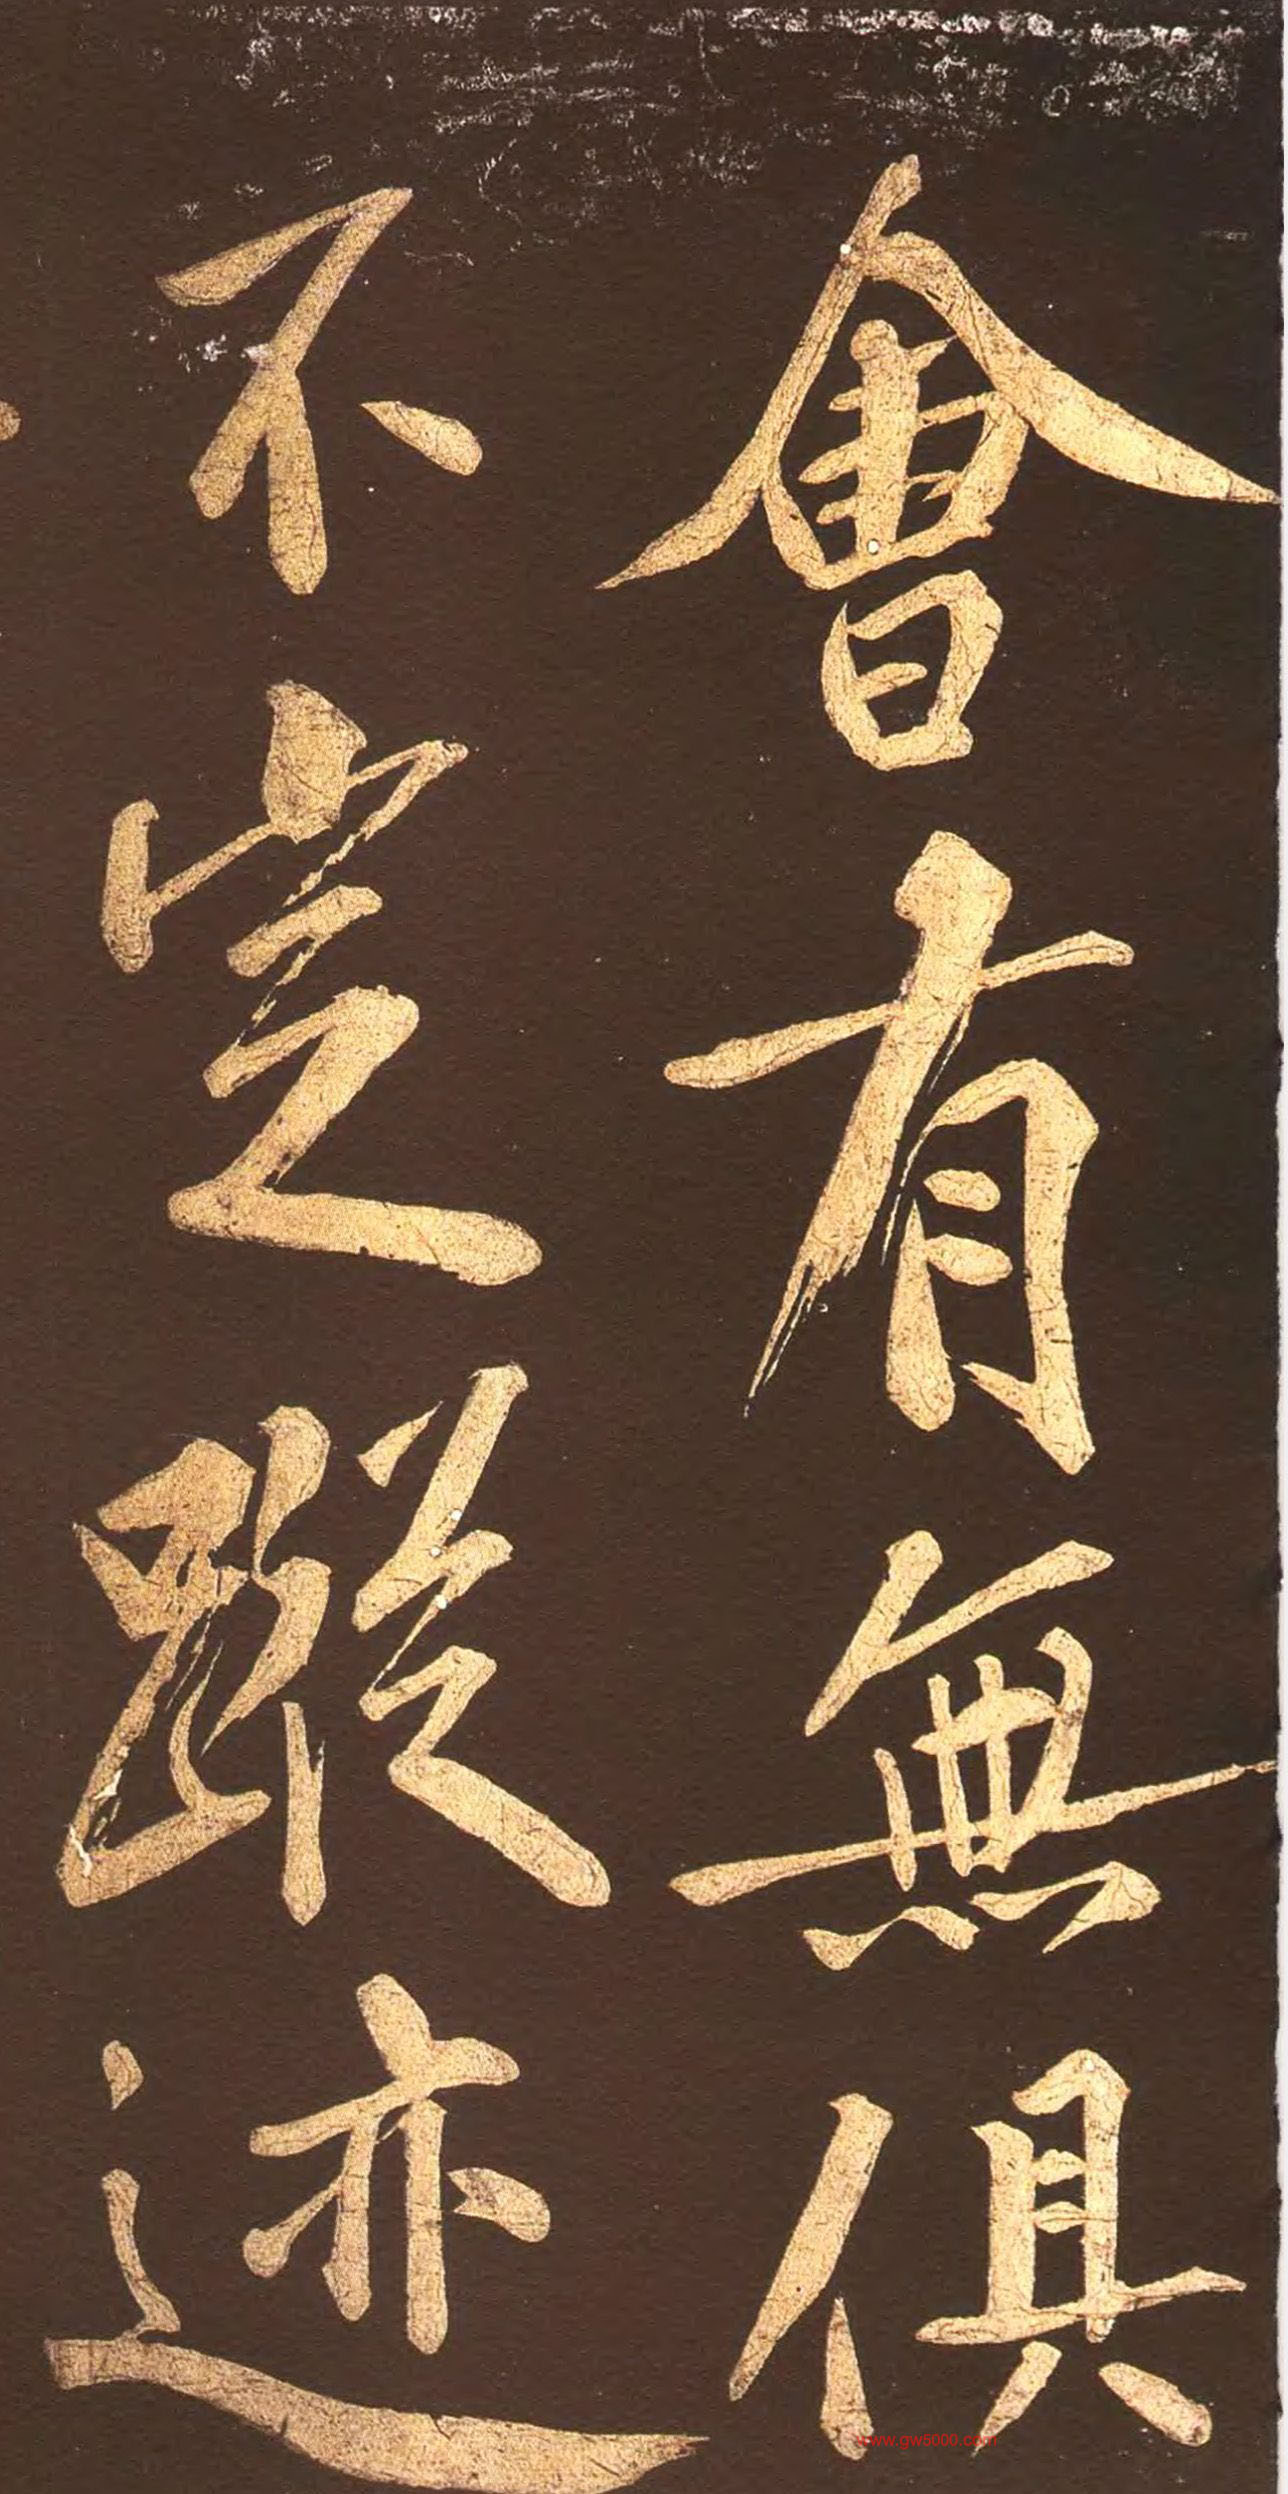 會有無俱
不定蹤迹
www.gw5000.com